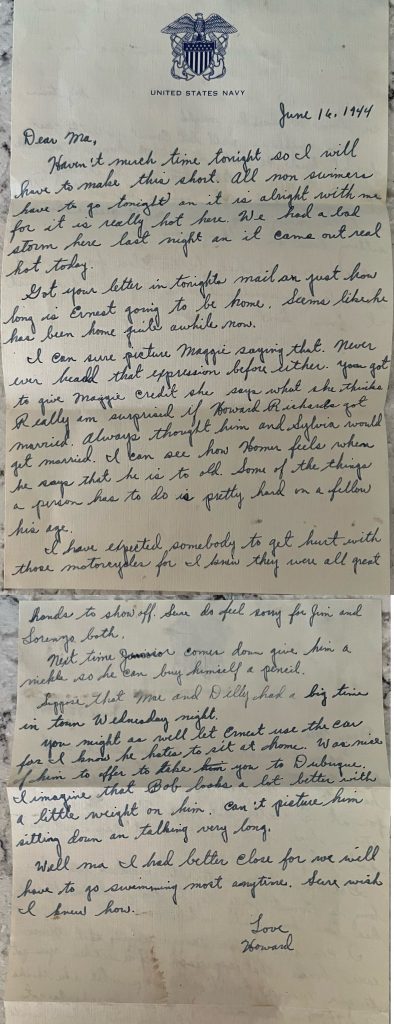 UNITED STATES NAVY
June 16, 1944
Dear Ma,
Haven't much time tonight so I will
have to make this short. All non swimers
have to go tonight an it is alright with me
for it is really hot here. We had a bad
storm here last night an it came out real
hot today.
Got your letter in tonights mail an just how
long is Ernest going to be home. Seems like he
has been home quite awhile now.
I can sure picture Maggie saying that. Never
ever heard that expression before either. You got
to give Maggie credit she says what she thinks
Really am surprised if Howard Richards got
married. Always thought him and Sylvia would
get married. I can see how Homer feels when
he says that he is to old. Some of the things
a person has to do is pretty hard on a fellow
his age.
I have expected somebody to get hurt with
those motorcycles for I knew they were all great
hands to show off. Sure do feel sorry for Jim and
Lorenzo both.
Next time Junior comes down give him a
nickle so he can buy himself a pencil.
Suppose that Mae and Dilly had a big time
in town Wednesday night.
You might as well let Ernest use the car
for I know he hates to sit at home. Was nice
of him to offer to take you to Dubuque.
I imagine that Bob looks a lot better with
a little weight on him. Can't picture him
sitting down an talking very long.
Well ma I had better close for we will
have to go swimming most anytime. Sure wish
I knew how.
Love
Howard